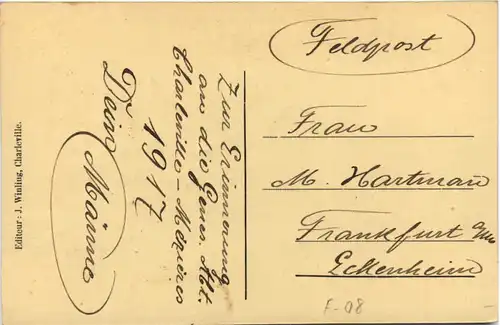 Editeur: J. Winling, Charleville.
Zur Erinnerung
an die Genes. Abt.
Charleville-Mézières
1917
Dein
Männe
Feldpost
Frau
M. Hartman
Frankfurt a/M
Eckenheim
F-08